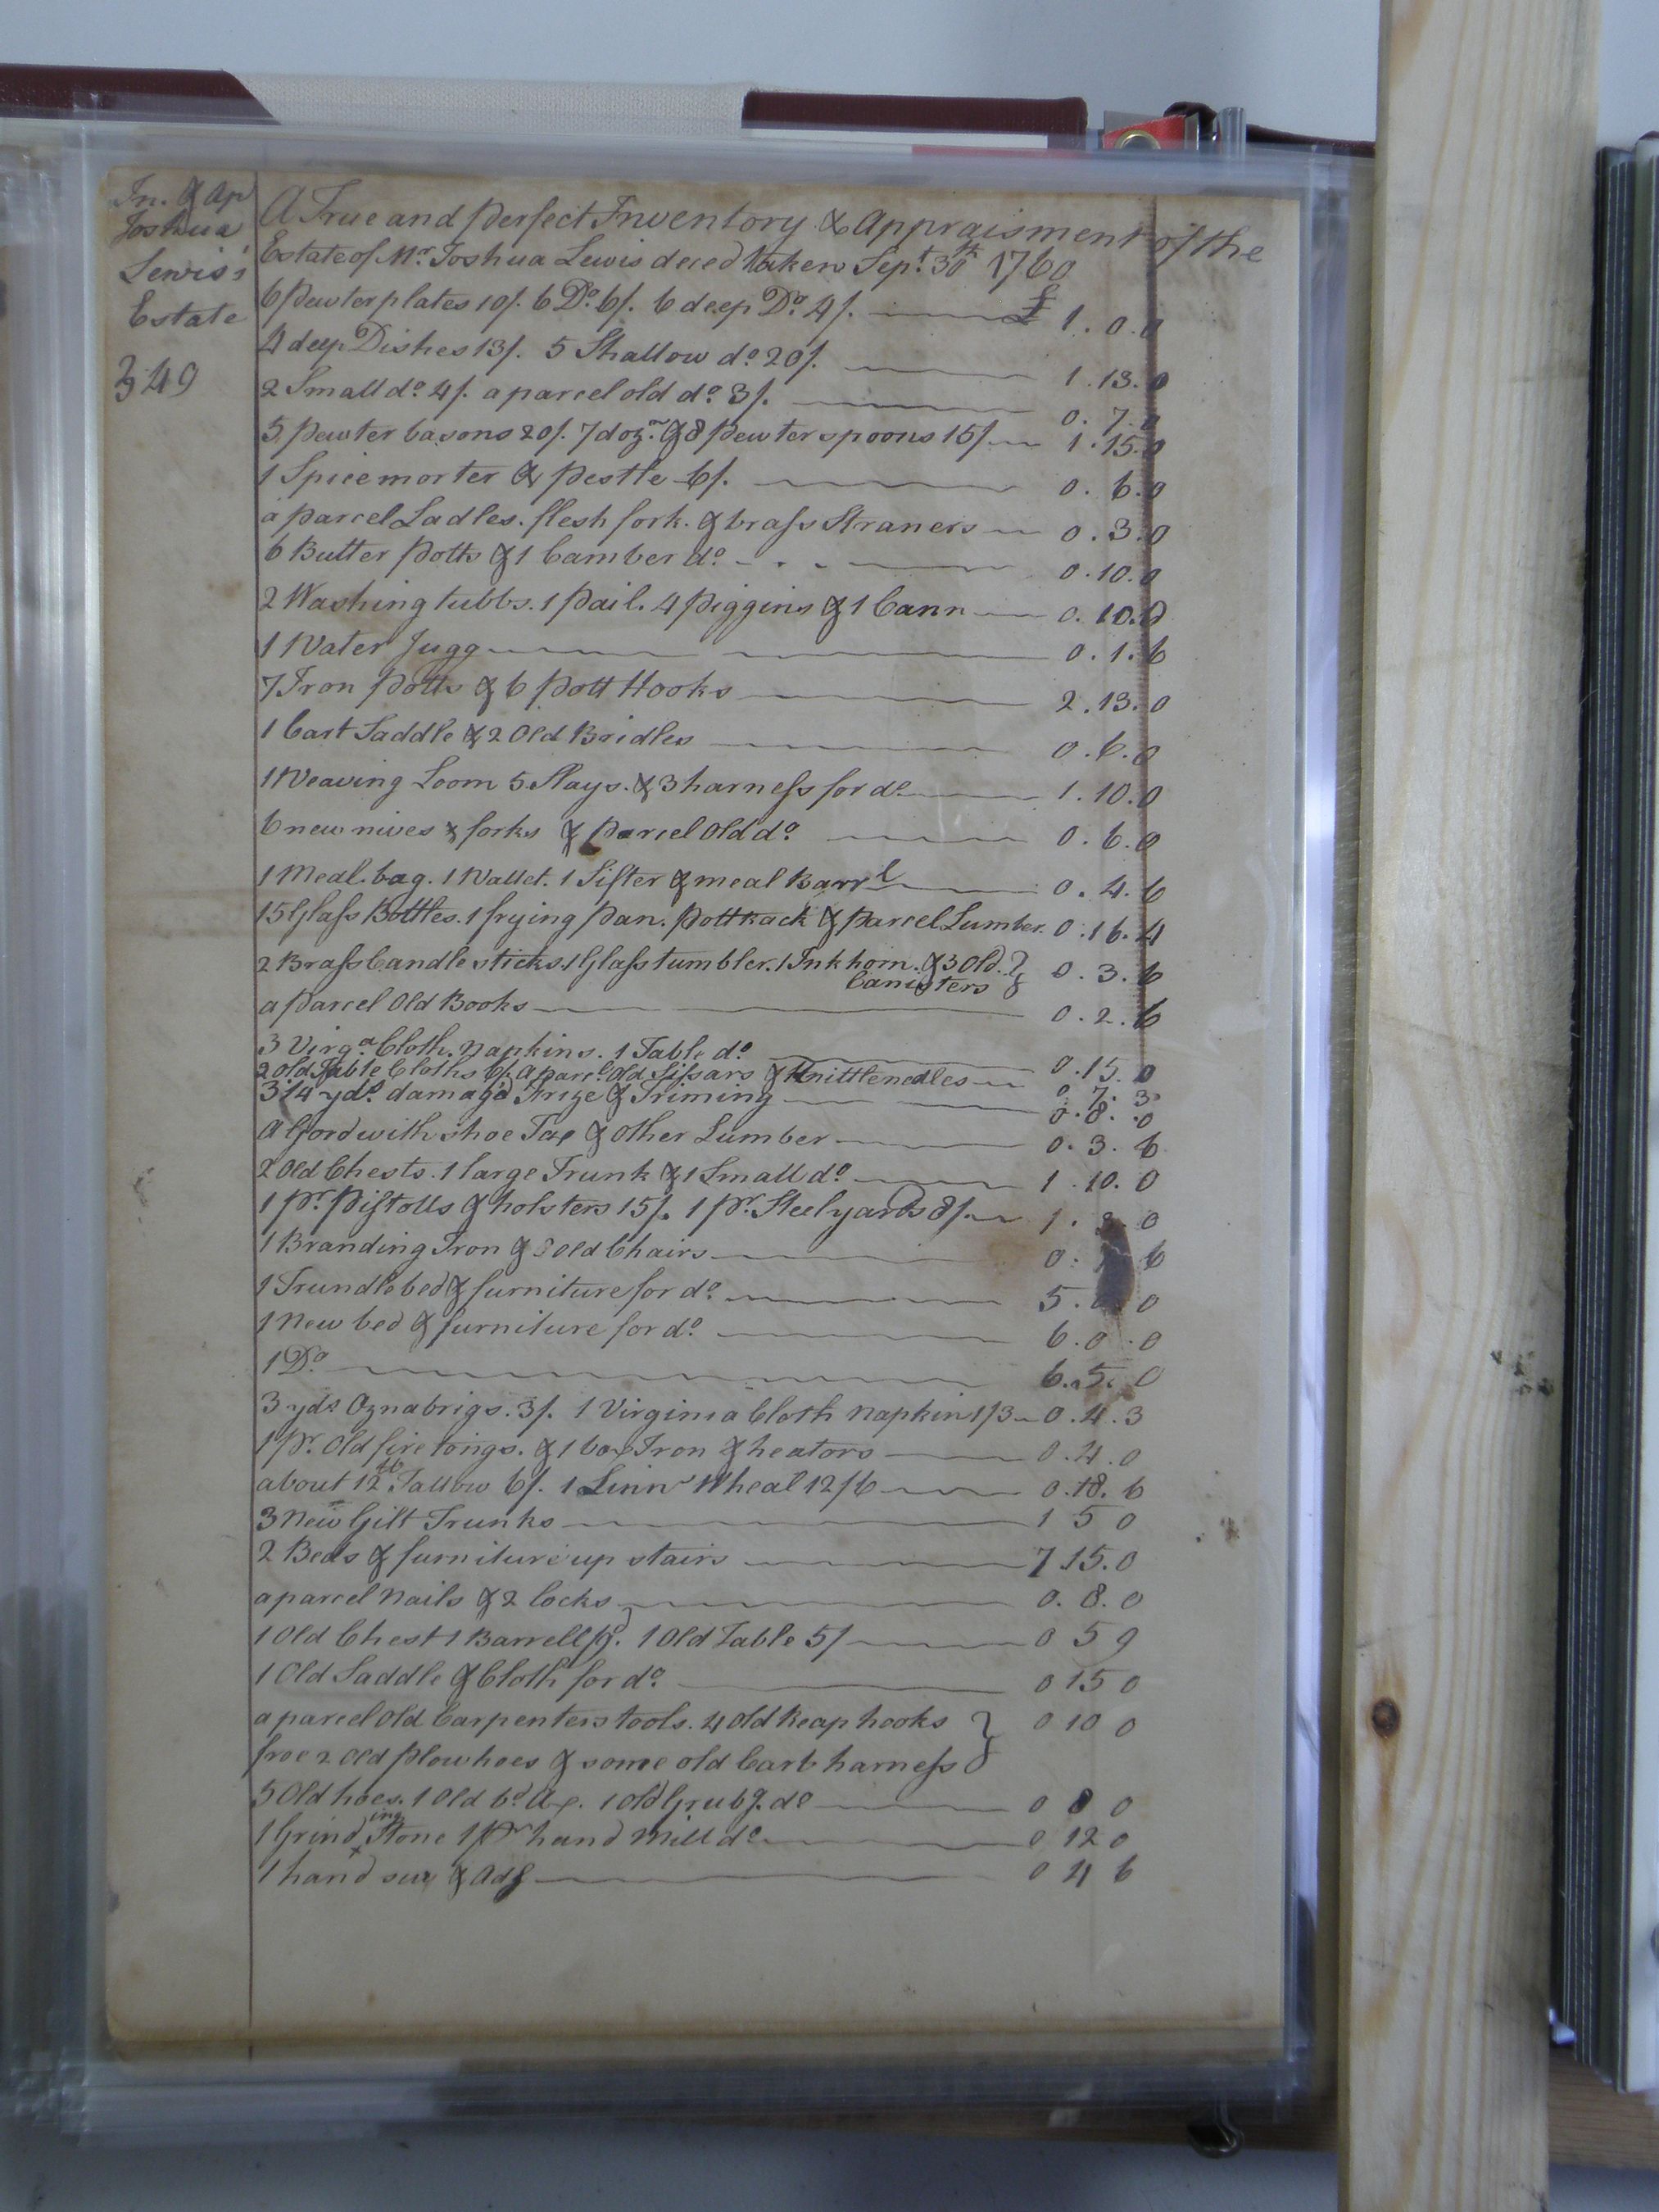 In. & Ap
Joshua
Lewis's
Estate
349
A True and perfect Inventory & Appraisment of the
Estate of Mr. Joshua Lewis deced taken Sept. 30th 1760
6 Pewter plates 10/. 6 Do. 6/. 6 deep Do. 4/. £ 1.0.0
4 deep Dishes 13/. 5 Shallow do. 20/. 1.13.0
2 Small do. 4/. a parcel old do. 3/. 0.7.0
5 pewter basons 20/. 7 dozn. & 8 Pewter spoons 15/ 1.15.0
1 Spice morter & pestle 6/. 0.6.0
a parcel Ladles. flesh fork. & brass Straners 0.3.0
6 Butter Potts & 1 Camber do. 0.10.0
2 Washing tubbs. 1 pail. 4 piggins & 1 Cann 0.10.0
1 Water Jugg 0.1.6
7 Iron Potts & 6 Pott Hooks 2.13.0
1 Cart Saddle & 2 Old Bridles 0.6.0
1 Weaving Loom 5 Slays. & 3 harness for do. 1.10.0
6 new nives & forks & Parcel Old do. 0.6.0
1 Meal. bag. 1 Wallet. 1 Sifter & meal Barrl 0.4.6
15 Glass Bottles. 1 frying Pan. Pottrack & Parcel Lumber. 0.16.4
2 Brass Candlesticks. 1 Glass tumbler. 1 Inkhorn. & 3 Old.
Canisters 0.3.6
a Parcel Old Books 0.2.6
3 Virga. Cloth. Napkins. 1 Table do. 0.15.0
2 old Table Cloths 6/. a parcl. Old Sissars & Knittlenedles 0.7.3
3 1/4 yds. damag'd Frize & Triming 0.8.0
A Gord with shoe Tax & other Lumber 0.3.6
2 Old Chests. 1 large Trunk & 1 Small do. 1.10.0
1 pr. Pistolls & holsters 15/. 1 pr. Steelyards 8/. 1. 0
1 Branding Iron & old Chairs 0. 6
1 Trundle bed & furniture for do. 5. 0
1 New bed & furniture for do. 6.0.0
1 Do. 6.5.0
3 yds Oznabrigs. 3/. 1 Virginia Cloth Napkin 1/3 0.4.3
1 pr. Old fire tongs. & 1 box Iron & heators 0.4.0
about 12 lb Tallow 6/. 1 Linn Wheal 12/6 0.18.6
3 New Gilt Trunks 1 5 0
2 Beds & furniture up stairs 7.15.0
a parcel Nails & 2 locks 0.8.0
1 Old Chest 1 Barrell 9d. 1 Old Table 5/ 0 5 9
1 Old Saddle & Cloth for do. 0 15 0
a parcel Old Carpenters tools. 4 Old Reap hooks 0 10 0
froe 2 old Plow hoes & some old Cart harness
5 Old hoes. 1 Old bd. Ax. 1 old Grubg. do 0 8 0
1 Grinding Stone 1 Pr hand Mill do. 0 12 0
1 hand saw & Adz 0 4 6